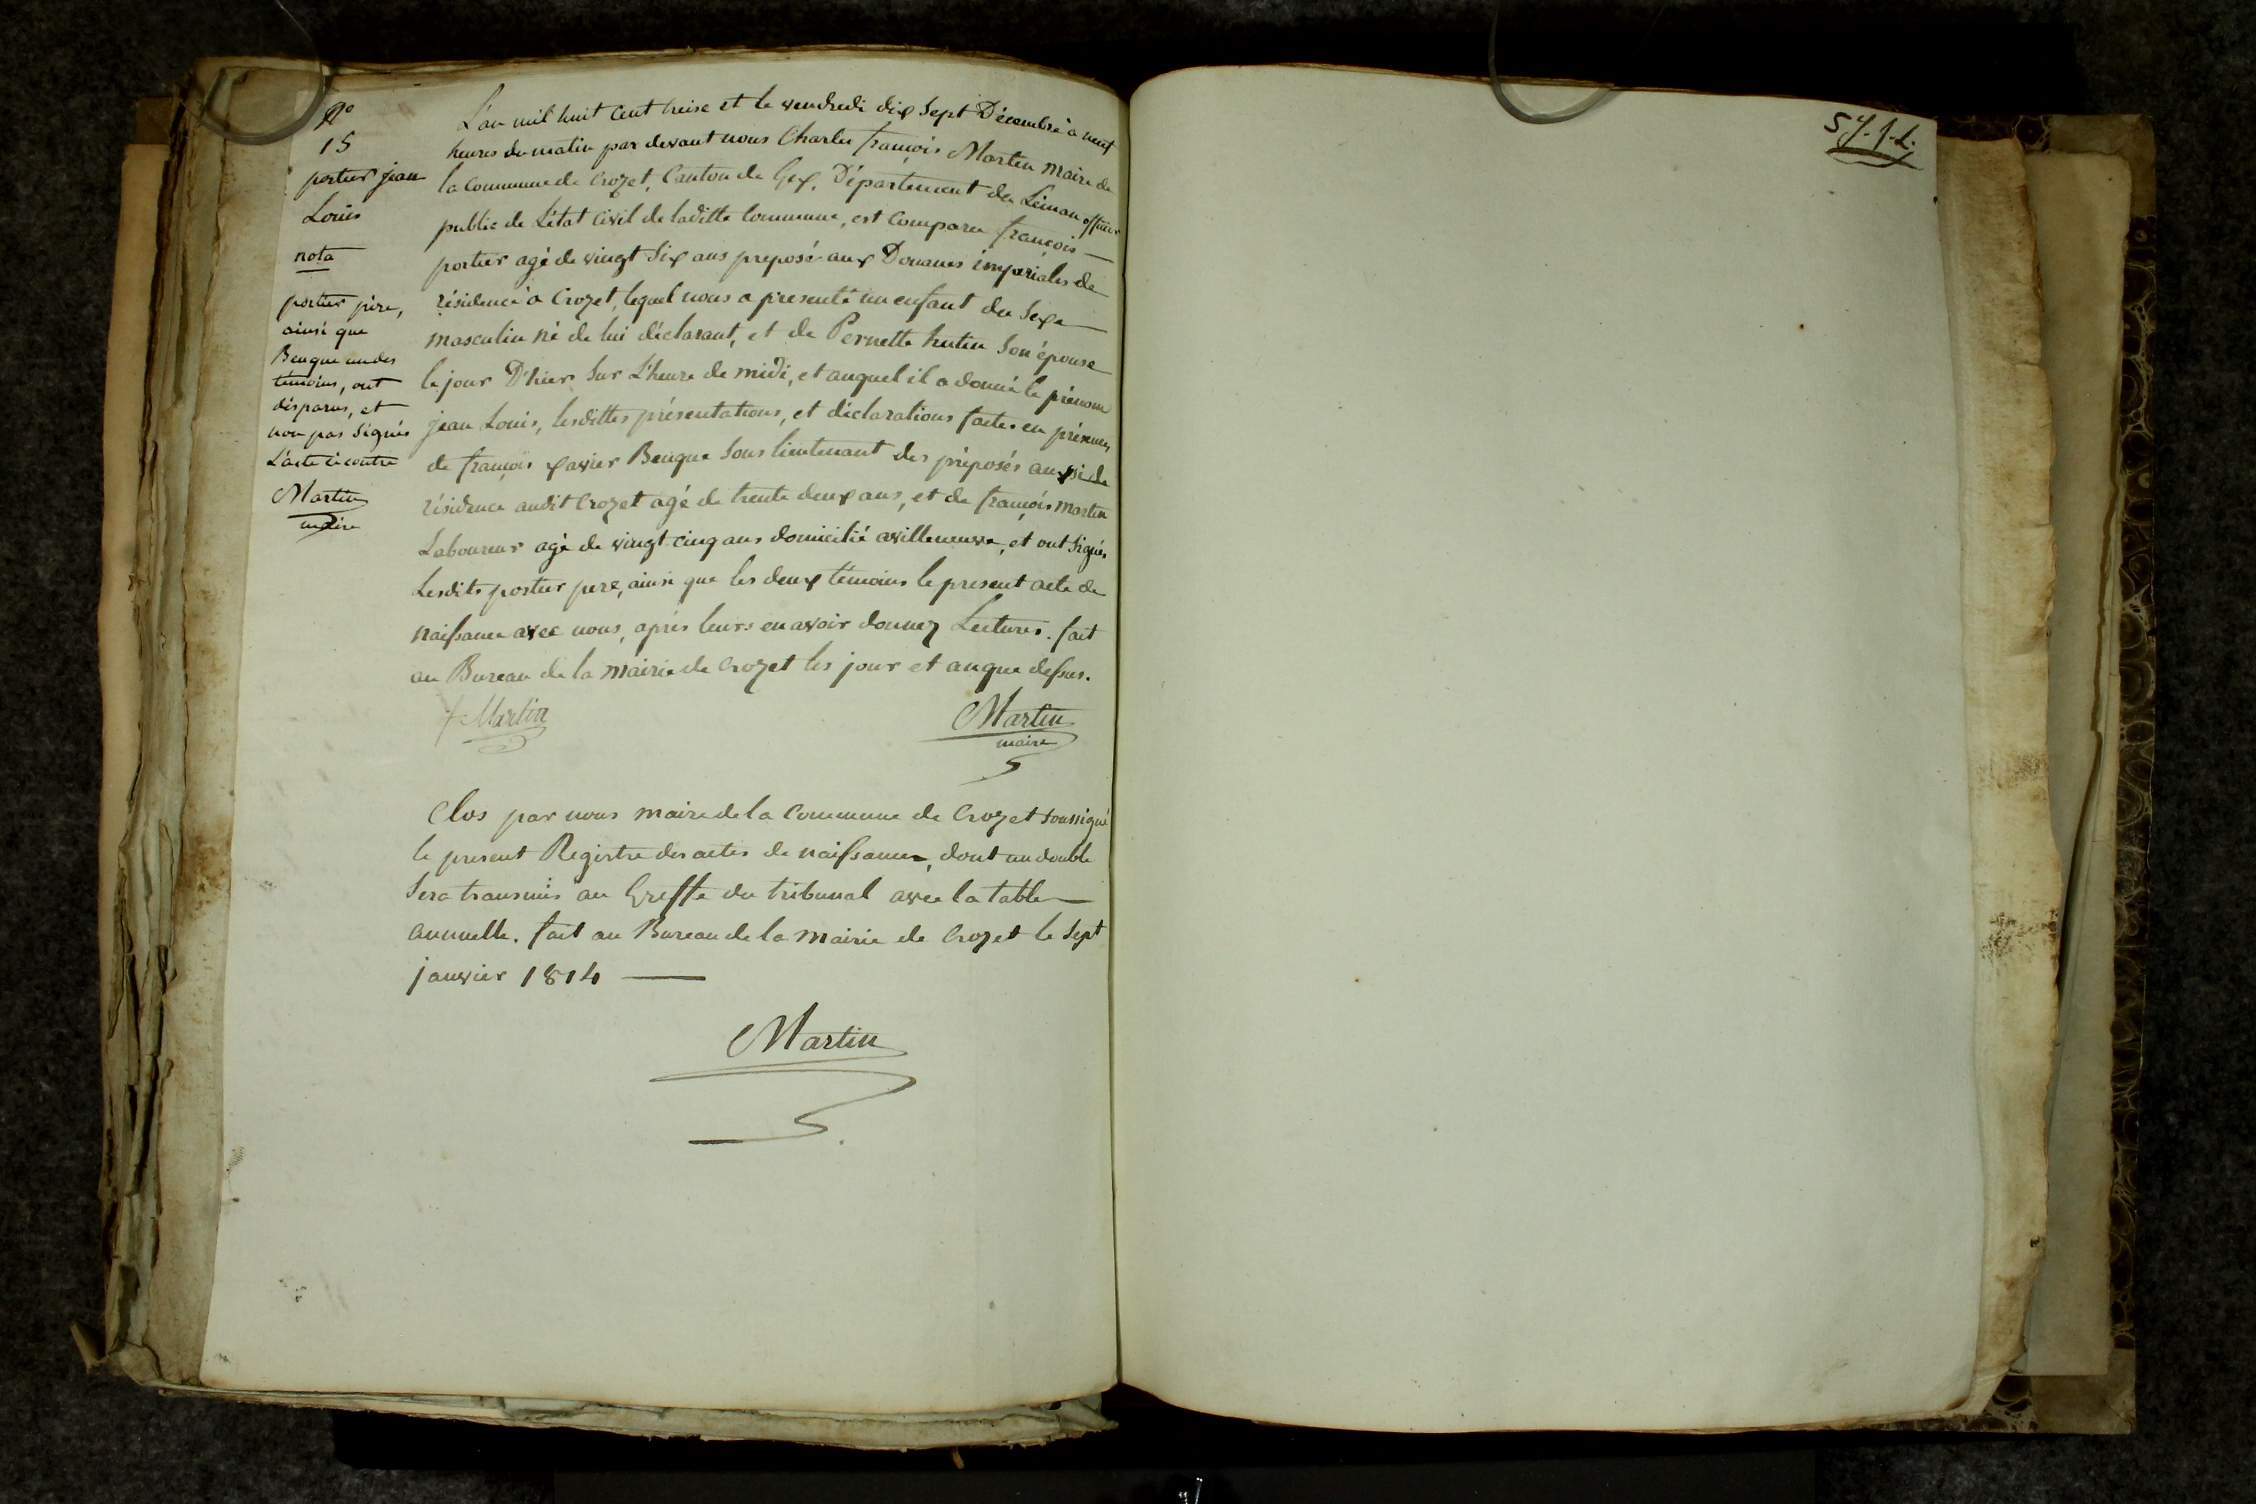 No
15
portier jean
Louis
nota
portier père,
ainsi que
Bengue un des
témoins, ont
disparus, et
non pas signés
L'acte ci contre
Martin
maire
L'an mil huit cent treise et le vendredi dix Sept Décembre à neuf
heures du matin par devant nous Charles françois Martin Maire de
la Commune de Crozet, Canton de Gex, Département du Léman officier
public de L'état Civil de laditte Commune, est Comparu françois
portier agé de vingt Six ans preposé aux Douanes impériales de
résidence à Crozet, lequel nous a presenté un enfant du Sexe
masculin né de lui déclarant, et de Pernette hutin Son épouse
le jour D'hier Sur L'heure de midi, et auquel il a donné le prénom
jean Louis, lesdittes présentations, et déclarations faites en présences
de françois xavier Bengue Sous lieutenant des préposés aussi de
résidence audit Crozet agé de trente deux ans, et de françois Martin
Laboureur agé de vingt cinq ans domicilié avilleneuve, et ont Signés
Lesdits portier pere, ainsi que les deux témoins le present acte de
naissance avec nous, après leurs en avoir donnez Lectures. fait
au Bureau de la Mairie de Crozet les jour et an que dessus.
f Martin
Martin
maire
Clos par nous maire de la Commune de Crozet soussigné
le present Registre des actes de naissance, dont un double
Sera transmis au Greffe du tribunal avec la table
annuelle. fait au Bureau de la mairie de Crozet le Sept
janvier 1814
Martin